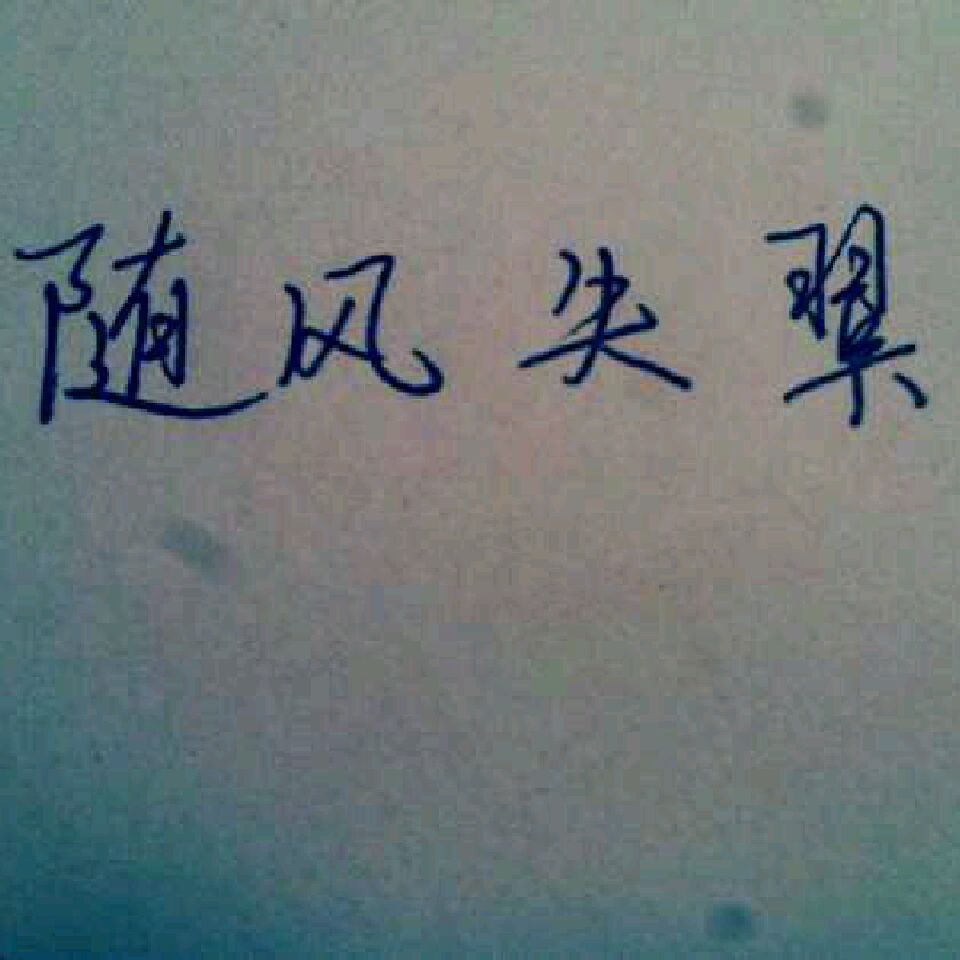 随风失翼